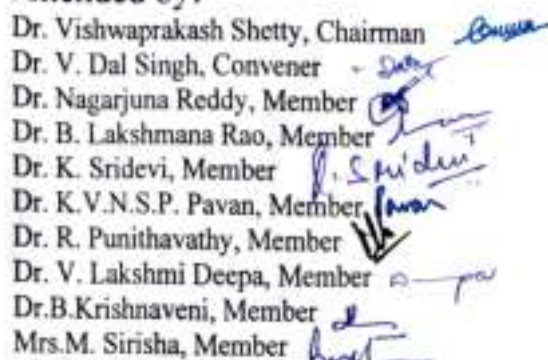 Attended by:
Dr. Vishwaprakash Shetty, Chairman
Dr. V. Dal Singh, Convener
Dr. Nagarjuna Reddy, Member
Dr. B. Lakshmana Rao, Member
Dr. K. Sridevi, Member
Dr. K.V.N.S.P. Pavan, Member
Dr. R. Punithavathy, Member
Dr. V. Lakshmi Deepa, Member
Dr.B.Krishnaveni, Member
Mrs.M. Sirisha, Member